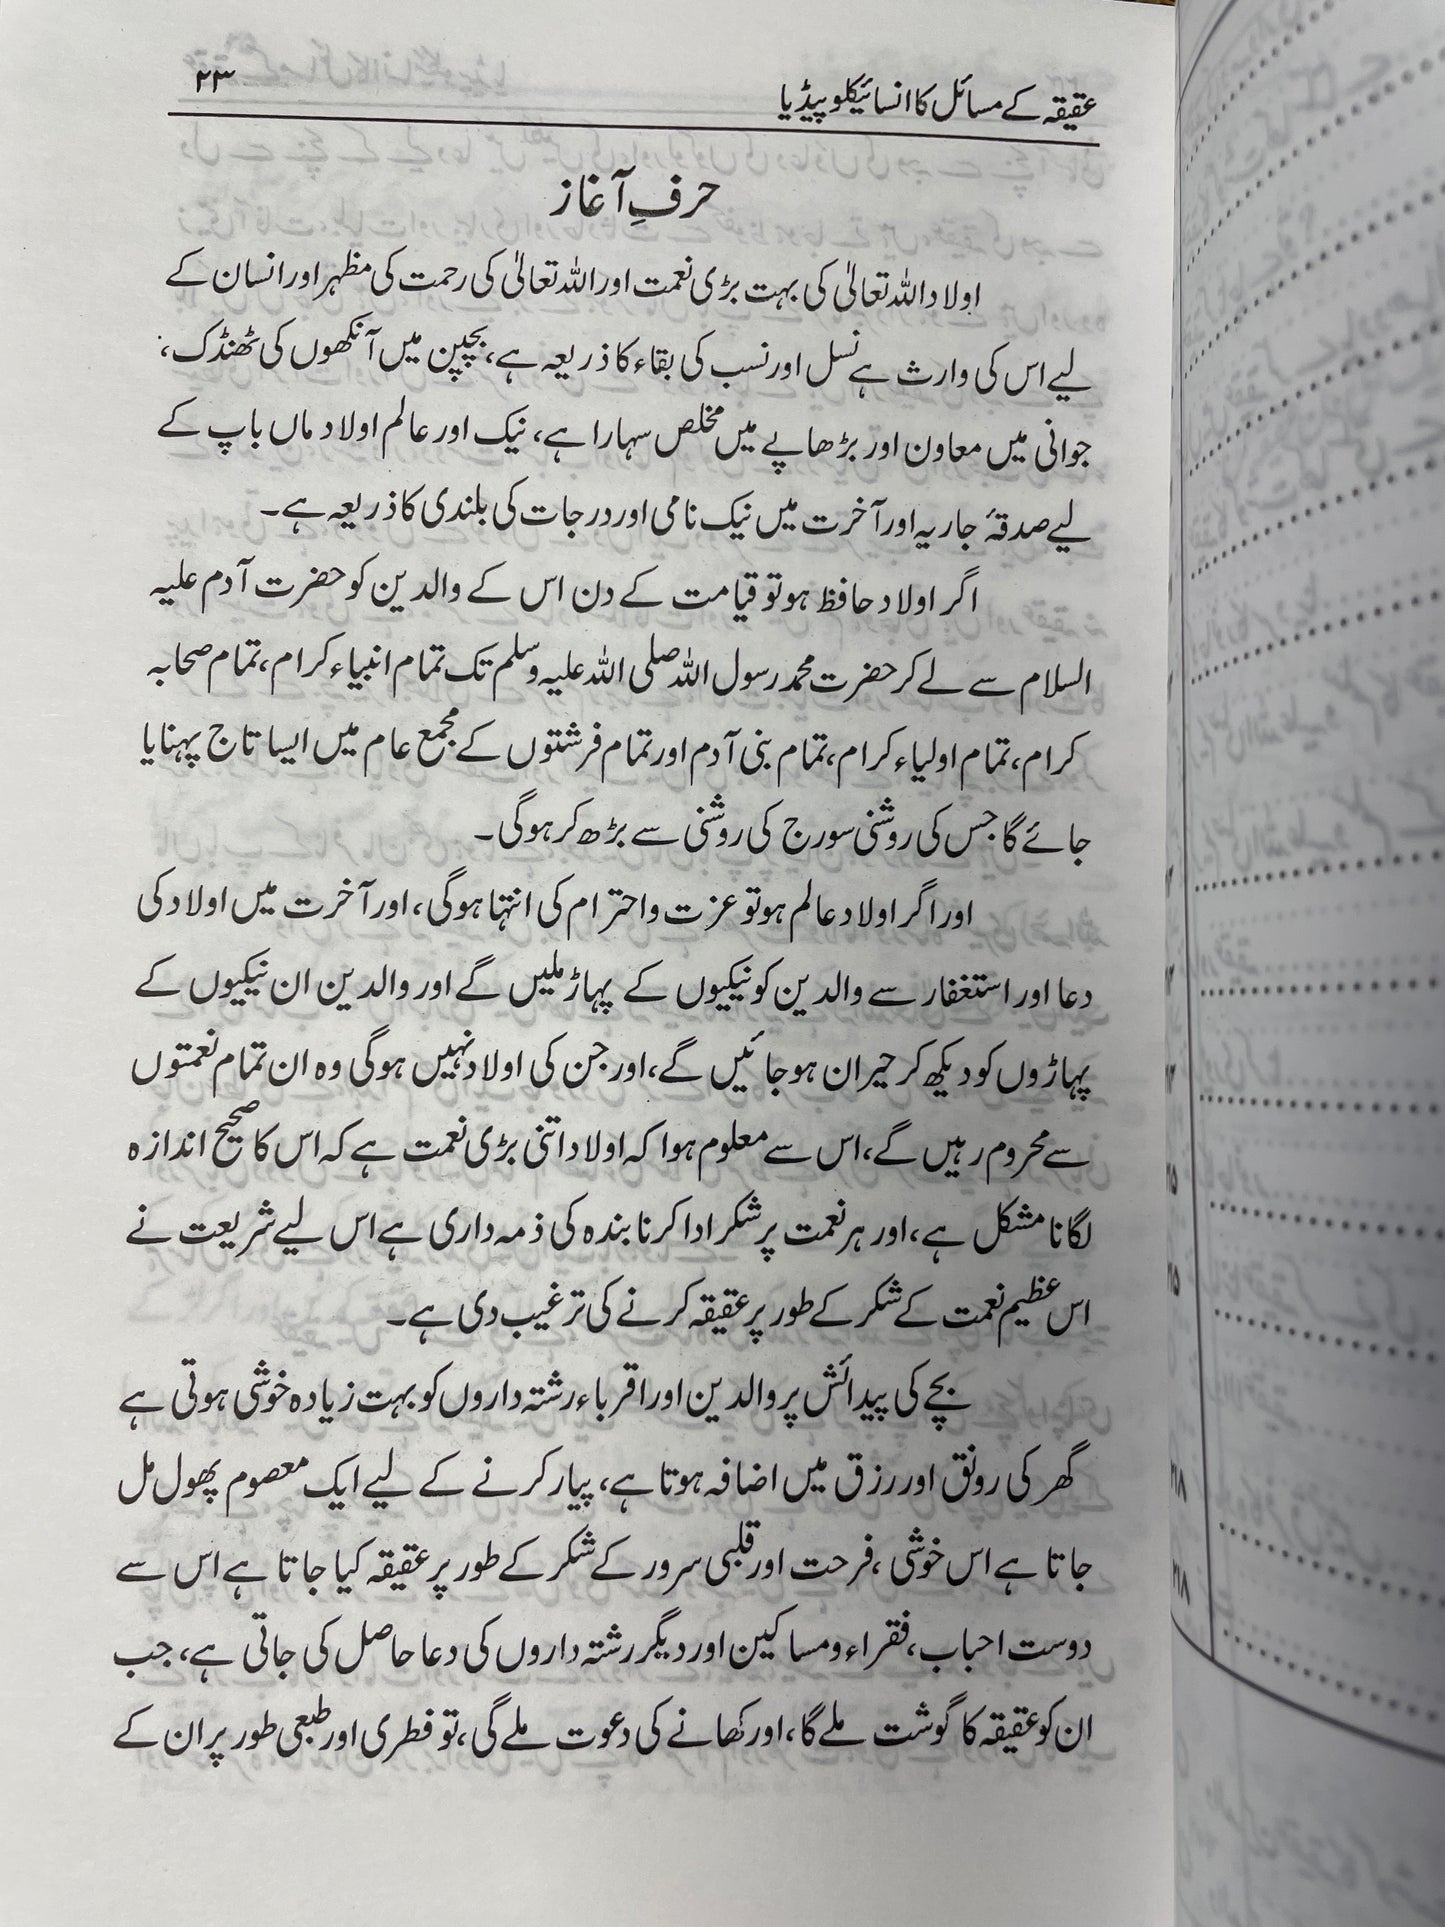 عقیقہ کے مسائل کا انسائیکلوپیڈیا ۲۳
حرفِ آغاز
اولاد اللہ تعالیٰ کی بہت بڑی نعمت اور اللہ تعالیٰ کی رحمت کی مظہر اور انسان کے
لیے اس کی وارث ہے نسل اور نسب کی بقاء کا ذریعہ ہے، بچپن میں آنکھوں کی ٹھنڈک،
جوانی میں معاون اور بڑھاپے میں مخلص سہارا ہے، نیک اور عالم اولاد ماں باپ کے
لیے صدقۂ جاریہ اور آخرت میں نیک نامی اور درجات کی بلندی کا ذریعہ ہے۔
اگر اولاد حافظ ہو تو قیامت کے دن اس کے والدین کو حضرت آدم علیہ
السلام سے لے کر حضرت محمد رسول اللہ صلی اللہ علیہ وسلم تک تمام انبیاء کرام، تمام صحابہ
کرام، تمام اولیاء کرام، تمام بنی آدم اور تمام فرشتوں کے مجمع عام میں ایسا تاج پہنایا
جائے گا جس کی روشنی سورج کی روشنی سے بڑھ کر ہوگی۔
اور اگر اولاد عالم ہو تو عزت و احترام کی انتہا ہوگی، اور آخرت میں اولاد کی
دعا اور استغفار سے والدین کو نیکیوں کے پہاڑ ملیں گے اور والدین ان نیکیوں کے
پہاڑوں کو دیکھ کر حیران ہو جائیں گے، اور جن کی اولاد نہیں ہوگی وہ ان تمام نعمتوں
سے محروم رہیں گے، اس سے معلوم ہوا کہ اولاد اتنی بڑی نعمت ہے کہ اس کا صحیح اندازہ
لگانا مشکل ہے، اور ہر نعمت پر شکر ادا کرنا بندہ کی ذمہ داری ہے اس لیے شریعت نے
اس عظیم نعمت کے شکر کے طور پر عقیقہ کرنے کی ترغیب دی ہے۔
بچے کی پیدائش پر والدین اور اقرباء رشتہ داروں کو بہت زیادہ خوشی ہوتی ہے
گھر کی رونق اور رزق میں اضافہ ہوتا ہے، پیار کرنے کے لیے ایک معصوم پھول مل
جاتا ہے اس خوشی، فرحت اور قلبی سرور کے شکر کے طور پر عقیقہ کیا جاتا ہے اس سے
دوست احباب، فقراء و مساکین اور دیگر رشتہ داروں کی دعا حاصل کی جاتی ہے، جب
ان کو عقیقہ کا گوشت ملے گا، اور کھانے کی دعوت ملے گی، تو فطری اور طبعی طور پر ان کے